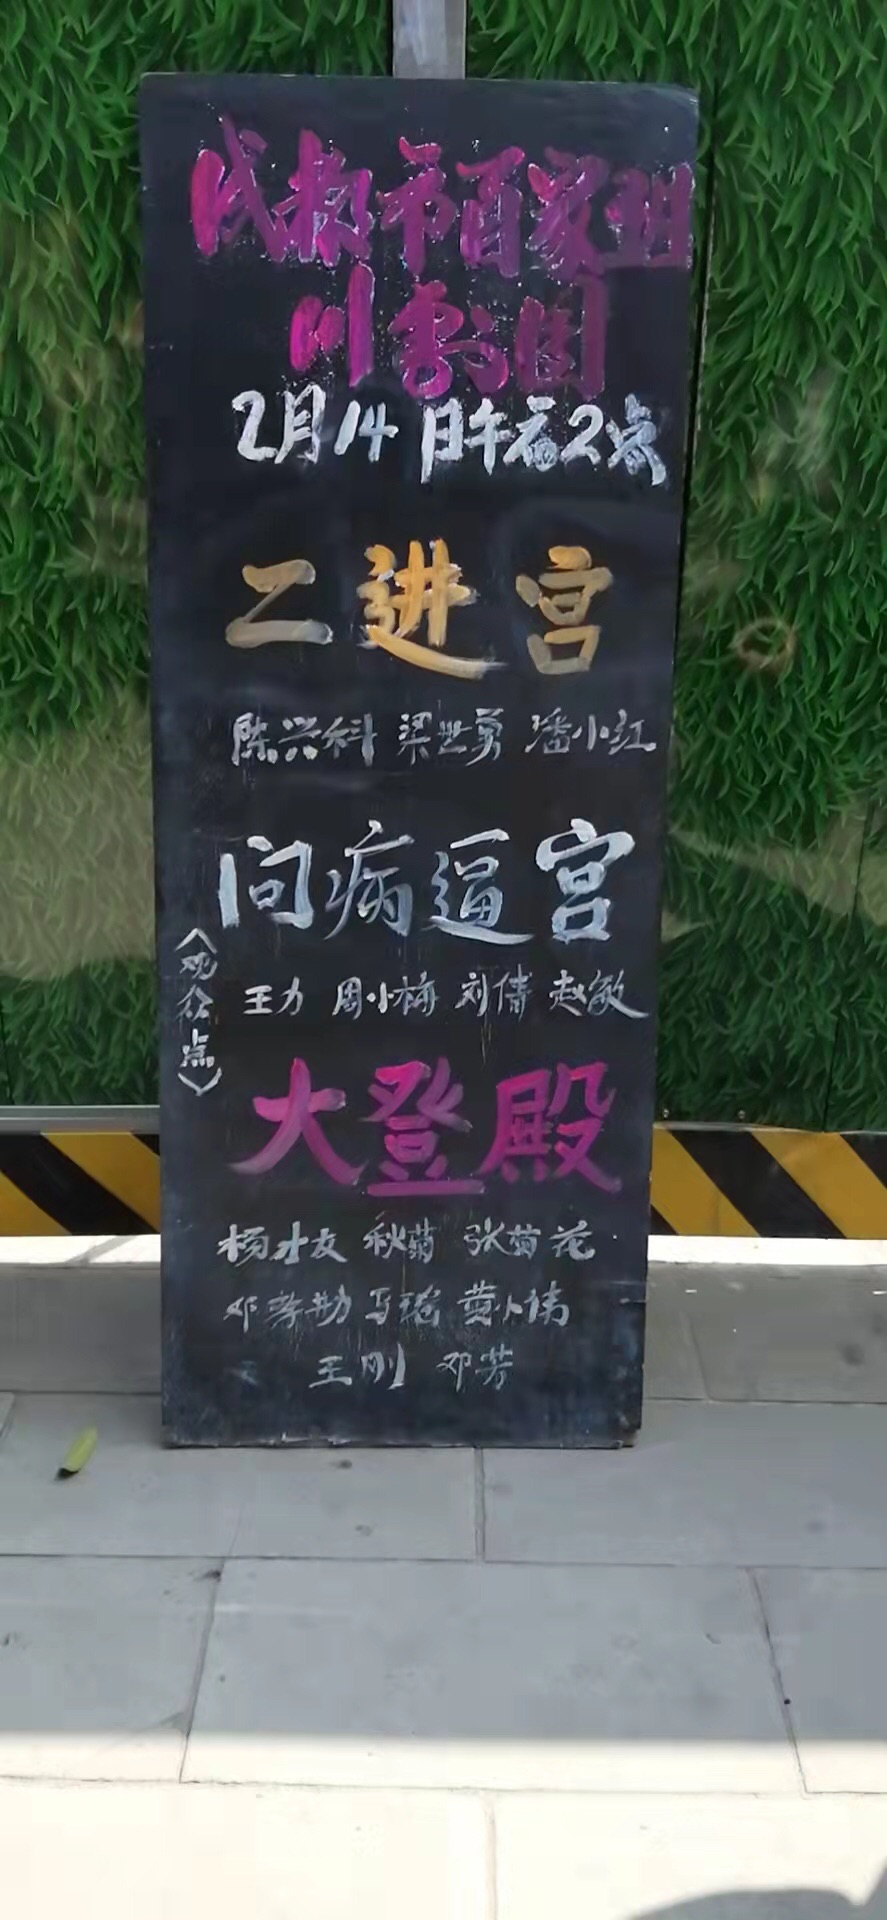 成都市百家班
川剧团
2月14日午后2点
二进宫
陈兴科 梁世勇 潘小红
问病逼宫
〈观众点〉
王力 周小梅 刘倩 赵敏
大登殿
杨才友 秋菊 张菊花
邓孝勋 马瑶 黄小伟
王刚 邓芳